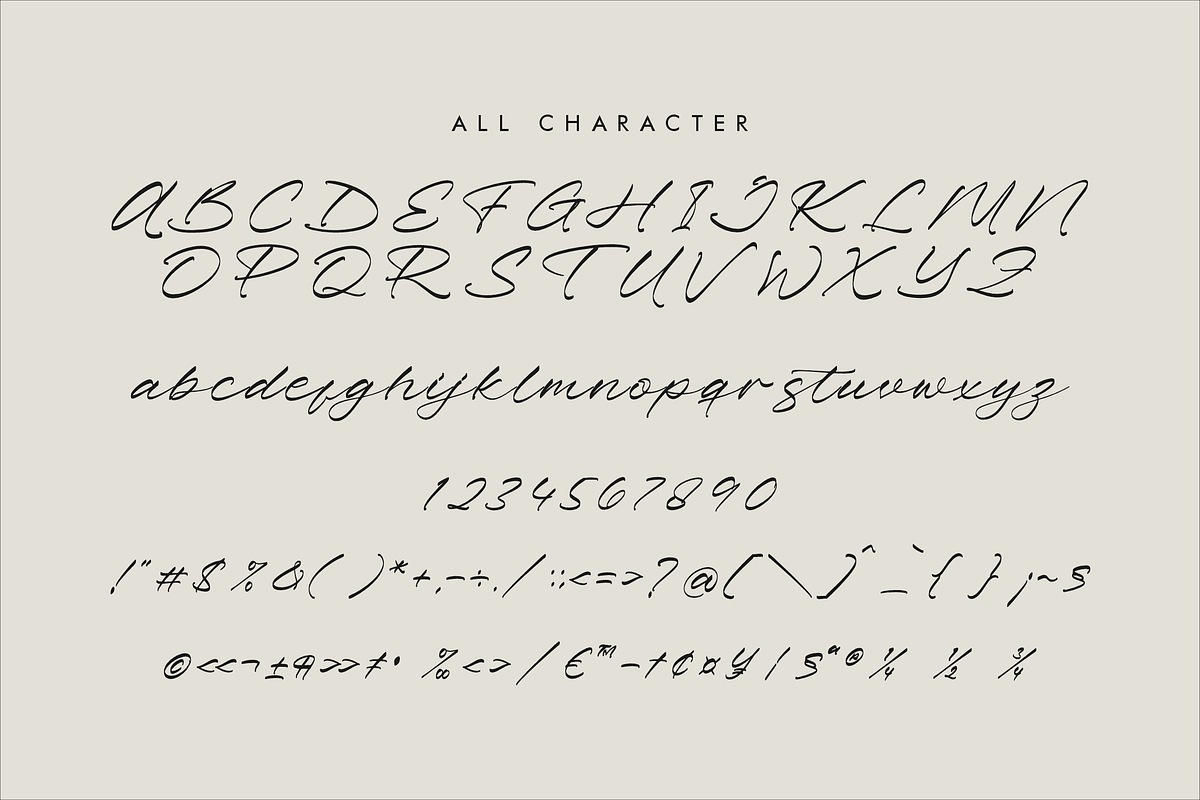 ALL CHARACTER
ABCDEFGHIJKLMN
OPQRSTUVWXYZ
abcdefghijklmnopqrstuvwxyz
1234567890
!"#$%&( )*+,-÷./ :;<=>?@[\]^_`{ } ¡~§
©<<¬±¶>>‡• ‰<>/€™–†¢¤¥¦§ª®¼ ½ ¾